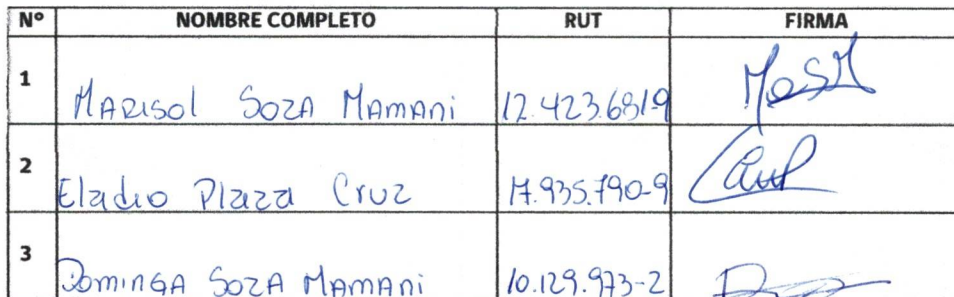 Nº NOMBRE COMPLETO RUT FIRMA
1 MARISOL SOZA MAMANI 12.423.681-9
2 Eladio Plaza Cruz 17.935.790-9
3 DOMINGA SOZA MAMANI 10.129.973-2